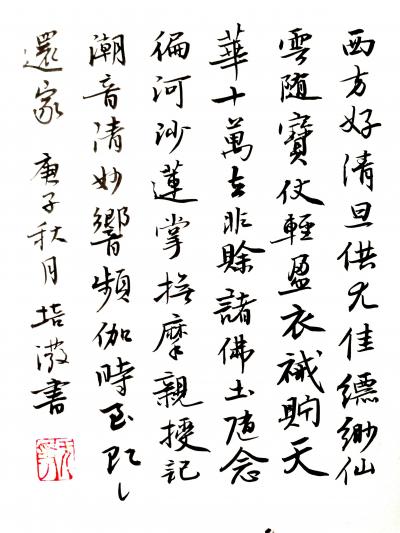 西方好清旦供尤佳縹緲仙
雲随寶仗輕盈衣祴貯天
華十萬去非賒諸佛土随念
徧河沙蓮掌撫摩親授記
潮音清妙響頻伽時至即
還家 庚子秋月 培書